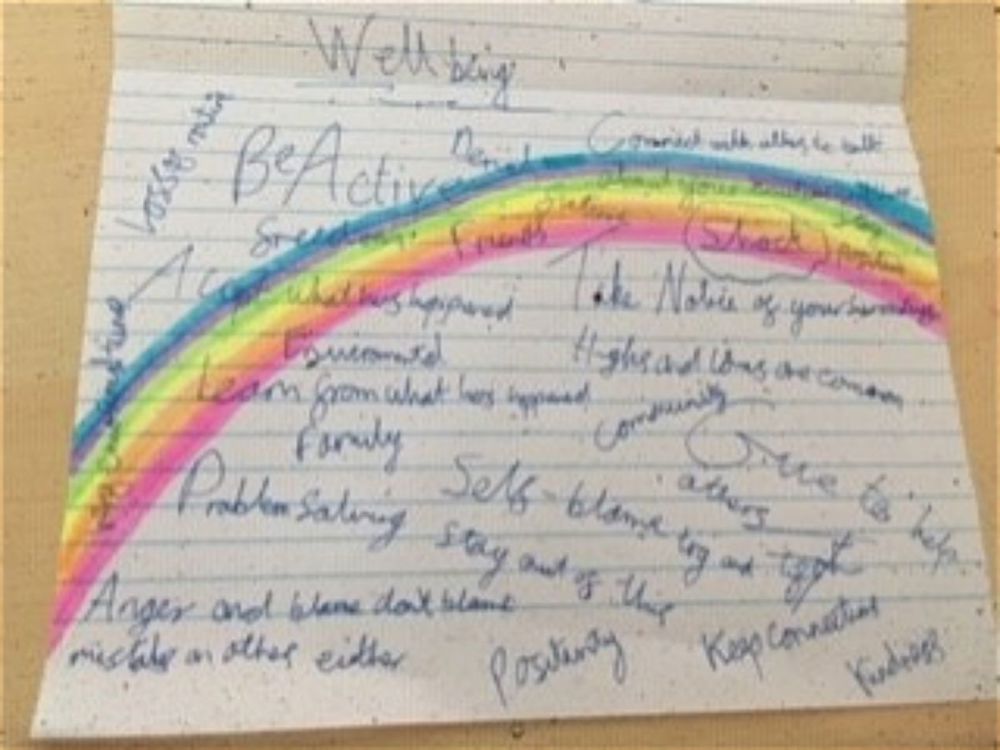 Wellbeing
Loss of
Be Active
Denial
Connect with others to talk
about your emotions
Friends
Shock
Stay
positive
Accept what has happened
Take Notice of your surroundings
Highs and lows are common
Learn from what has happened
Community
Family
Give to help
others
Problem Solving
Self-blame try and
stay out of this
Anger and blame don't blame
mistake on others either
Positivity
Keep connection
Kindness